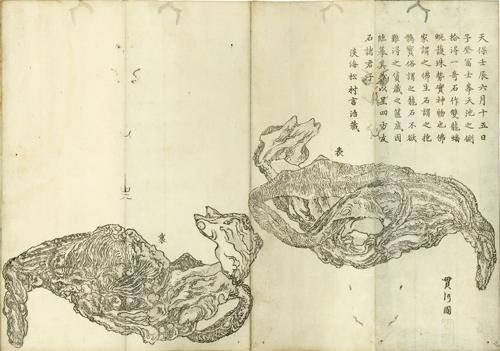 天保壬辰六月十五日
予登富士峯天池之側
拾得一奇石作雙龍蟠
蜿護珠勢實神物也佛
家謂之佛生石謂之抱
寶俗謂之龍石不欲
難得之貨藏之篋底因
臨摹其以呈四方友
石諸君子
淡海松村言治藏
表
裏
貫河圖